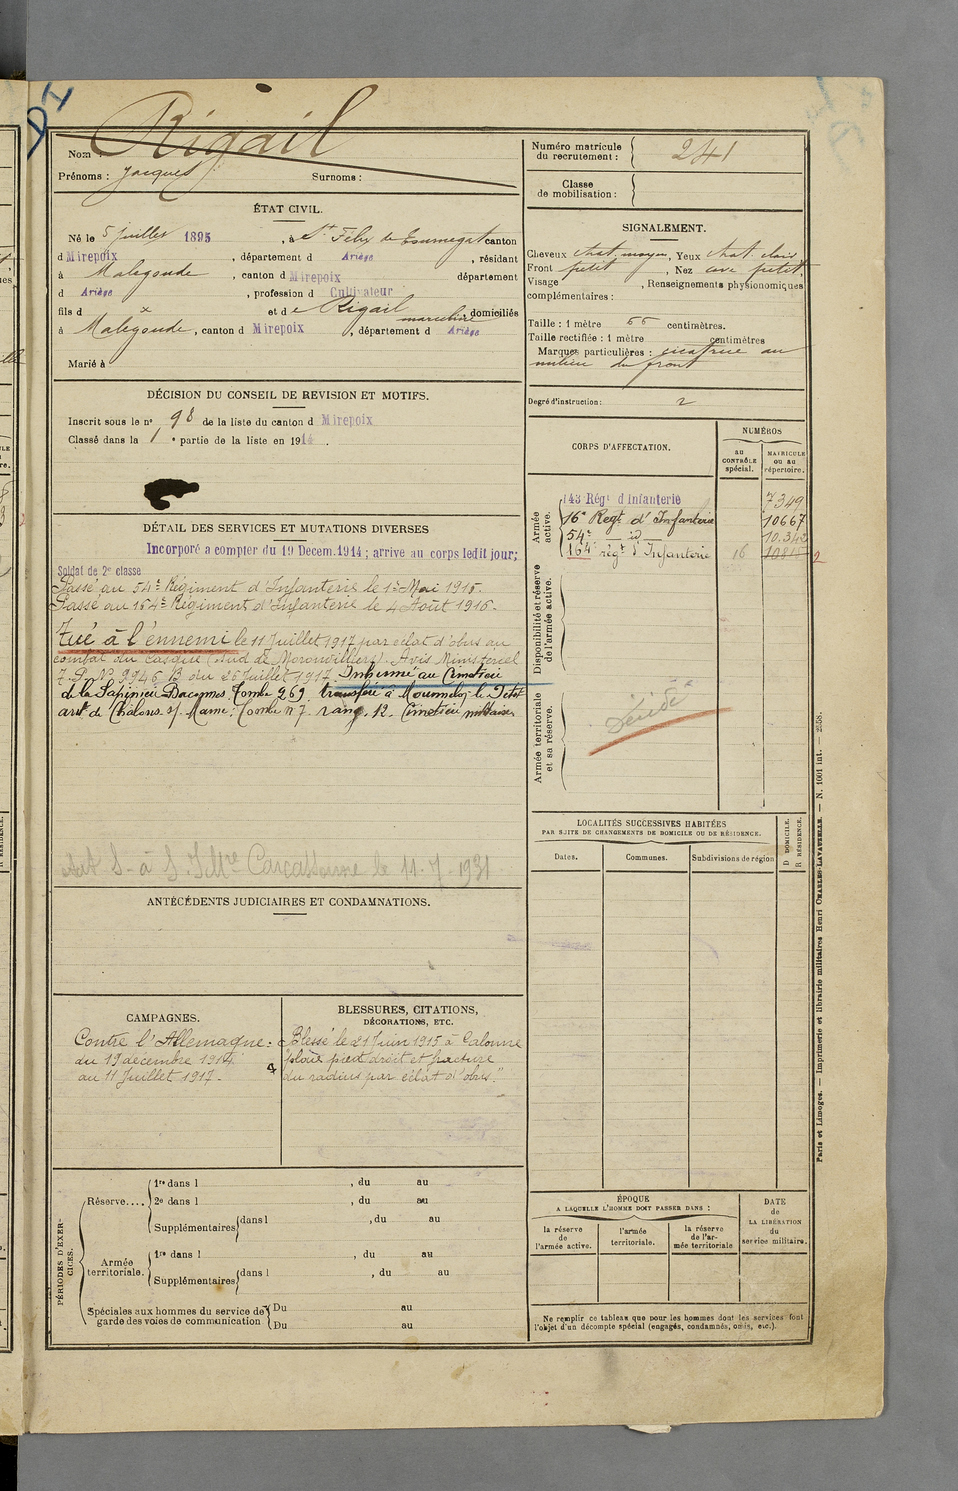 DI
Nom : Rigail
Prénoms : Jacques Surnoms :
Numéro matricule du recrutement : 241
Classe de mobilisation :
ÉTAT CIVIL.
Né le 5 Juillet 1895, à St Félix de Tournegat canton
d Mirepoix, département d Ariège, résidant
à Malegoude, canton d Mirepoix département
d Ariège, profession d Cultivateur
fils d x et de Rigail domiciliés
à Malegoude, canton d Mirepoix, département d Ariège
Marié à
SIGNALEMENT.
Cheveux chat. moyen, Yeux chat. clairs
Front petit, Nez petit,
Visage , Renseignements physionomiques
complémentaires :
Taille : 1 mètre 66 centimètres.
Taille rectifiée : 1 mètre centimètres
Marques particulières : cicatrice au
milieu du front
Degré d'instruction : 2
DÉCISION DU CONSEIL DE REVISION ET MOTIFS.
Inscrit sous le n° 98 de la liste du canton d Mirepoix
Classé dans la 1e partie de la liste en 1914.
CORPS D'AFFECTATION.
NUMÉROS
au CONTRÔLE spécial.
MATRICULE ou au répertoire.
Armée active.
143 Régt d'Infanterie 7349
16e Regt d'Infanterie 10667
54e — id 10.342
164e régt d'Infanterie 16 10815
Disponibilité et réserve de l'armée active.
Armée territoriale et sa réserve.
Décédé
DÉTAIL DES SERVICES ET MUTATIONS DIVERSES
Incorporé a compter du 19 Decem. 1914 ; arrive au corps ledit jour;
Soldat de 2e classe
Passé au 54e Régiment d'Infanterie le 1er Mai 1915.
Passé au 164e Régiment d'Infanterie le 4 Août 1916.
Tué à l'ennemi le 11 Juillet 1917 par eclat d'obus au
combat du Casque (Sud de Moronvilliers). Avis Ministeriel
N° 9946 B du 26 Juillet 1917. Inhumé au Cimetière
de la Sapinière Tombe 269 transféré à Mourmelon le Petit
art de Châlons s/ Marne: Tombe n° 7 rang 12. Cimetière militaire
à Carcassonne le 11-7-1931
LOCALITÉS SUCCESSIVES HABITÉES
PAR SUITE DE CHANGEMENTS DE DOMICILE OU DE RÉSIDENCE.
Dates. Communes. Subdivisions de région D DOMICILE. R RÉSIDENCE.
ANTÉCÉDENTS JUDICIAIRES ET CONDAMNATIONS.
CAMPAGNES.
Contre l'Allemagne:
du 19 decembre 1914
au 11 Juillet 1917.
BLESSURES, CITATIONS,
DÉCORATIONS, ETC.
Blessé le 21 Juin 1915 à Calonne
"plaie pied droit et fracture
du radius par éclat d'obus."
PÉRIODES D'EXERCICES.
Réserve....
1re dans l , du au
2e dans l , du au
Supplémentaires dans l , du au
Armée territoriale.
1re dans l , du au
Supplémentaires dans l , du au
Spéciales aux hommes du service de garde des voies de communication
Du au
Du au
ÉPOQUE
A LAQUELLE L'HOMME DOIT PASSER DANS :
la réserve de l'armée active.
l'armée territoriale.
la réserve de l'armée territoriale
DATE de LA LIBÉRATION du service militaire.
Ne remplir ce tableau que pour les hommes dont les services font
l'objet d'un décompte spécial (engagés, condamnés, omis, etc.).
Paris et Limoges. — Imprimerie et librairie militaires Henri CHARLES-LAVAUZELLE. — N. 1001 int. — 2558.